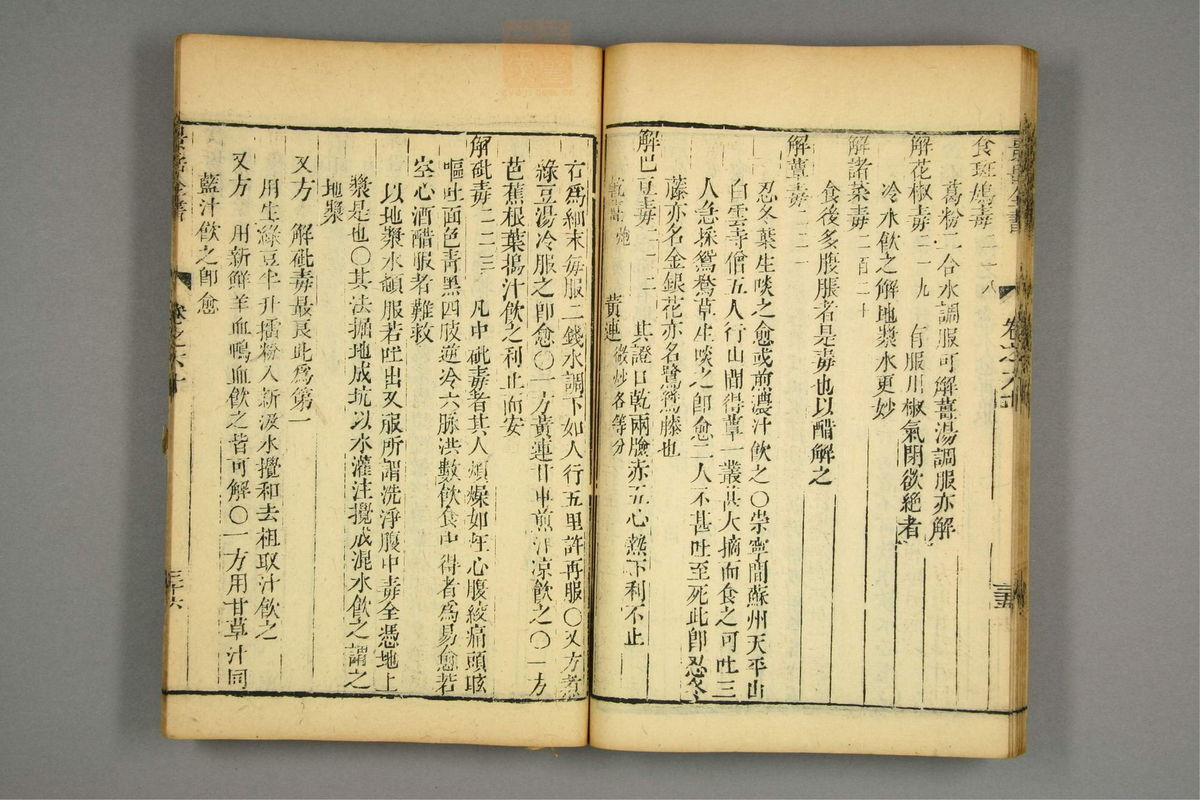 景岳全書
卷之六十
三五
食斑鳩毒二一八
葛粉二合水調服可解薑湯調服亦解
解花椒毒二一九 有服川椒氣閉欲絕者
冷水飲之解地漿水更妙
解諸菜毒二百二十
食後多腹脹者是毒也以醋解之
解蕈毒二二一
忍冬葉生啖之愈或煎濃汁飲之〇崇寧間蘇州天平山
白雲寺僧五人行山間得蕈一叢甚大摘而食之可吐三
人急採鴛鴦草生啖之即愈二人不甚吐至死此即忍冬
藤亦名金銀花亦名鷺鷥藤也
解巴豆毒二二二 其證口乾兩臉赤五心熱下利不止
乾薑炮 黃連微炒各等分
右為細末每服二錢水調下如人行五里許再服〇又方煮
綠豆湯冷服之即愈〇一方黃連甘草煎汁涼飲之〇一方
芭蕉根葉搗汁飲之利止而安
解砒毒二二三 凡中砒毒者其人煩燥如狂心腹絞痛頭眩
嘔吐面色青黑四肢逆冷六脉洪數飲食中得者為易愈若
空心酒醋服者難救
以地漿水頓服若吐出又服所謂洗淨腹中毒全憑地上
漿是也〇其法掘地成坑以水灌注攪成混水飲之謂之
地漿
又方 解砒毒最良此為第一
用生綠豆半升擂粉入新汲水攪和去粗取汁飲之
又方 用新鮮羊血鴨血飲之皆可解〇一方用甘草汁同
藍汁飲之即愈
景岳全書
卷之六十
三十六